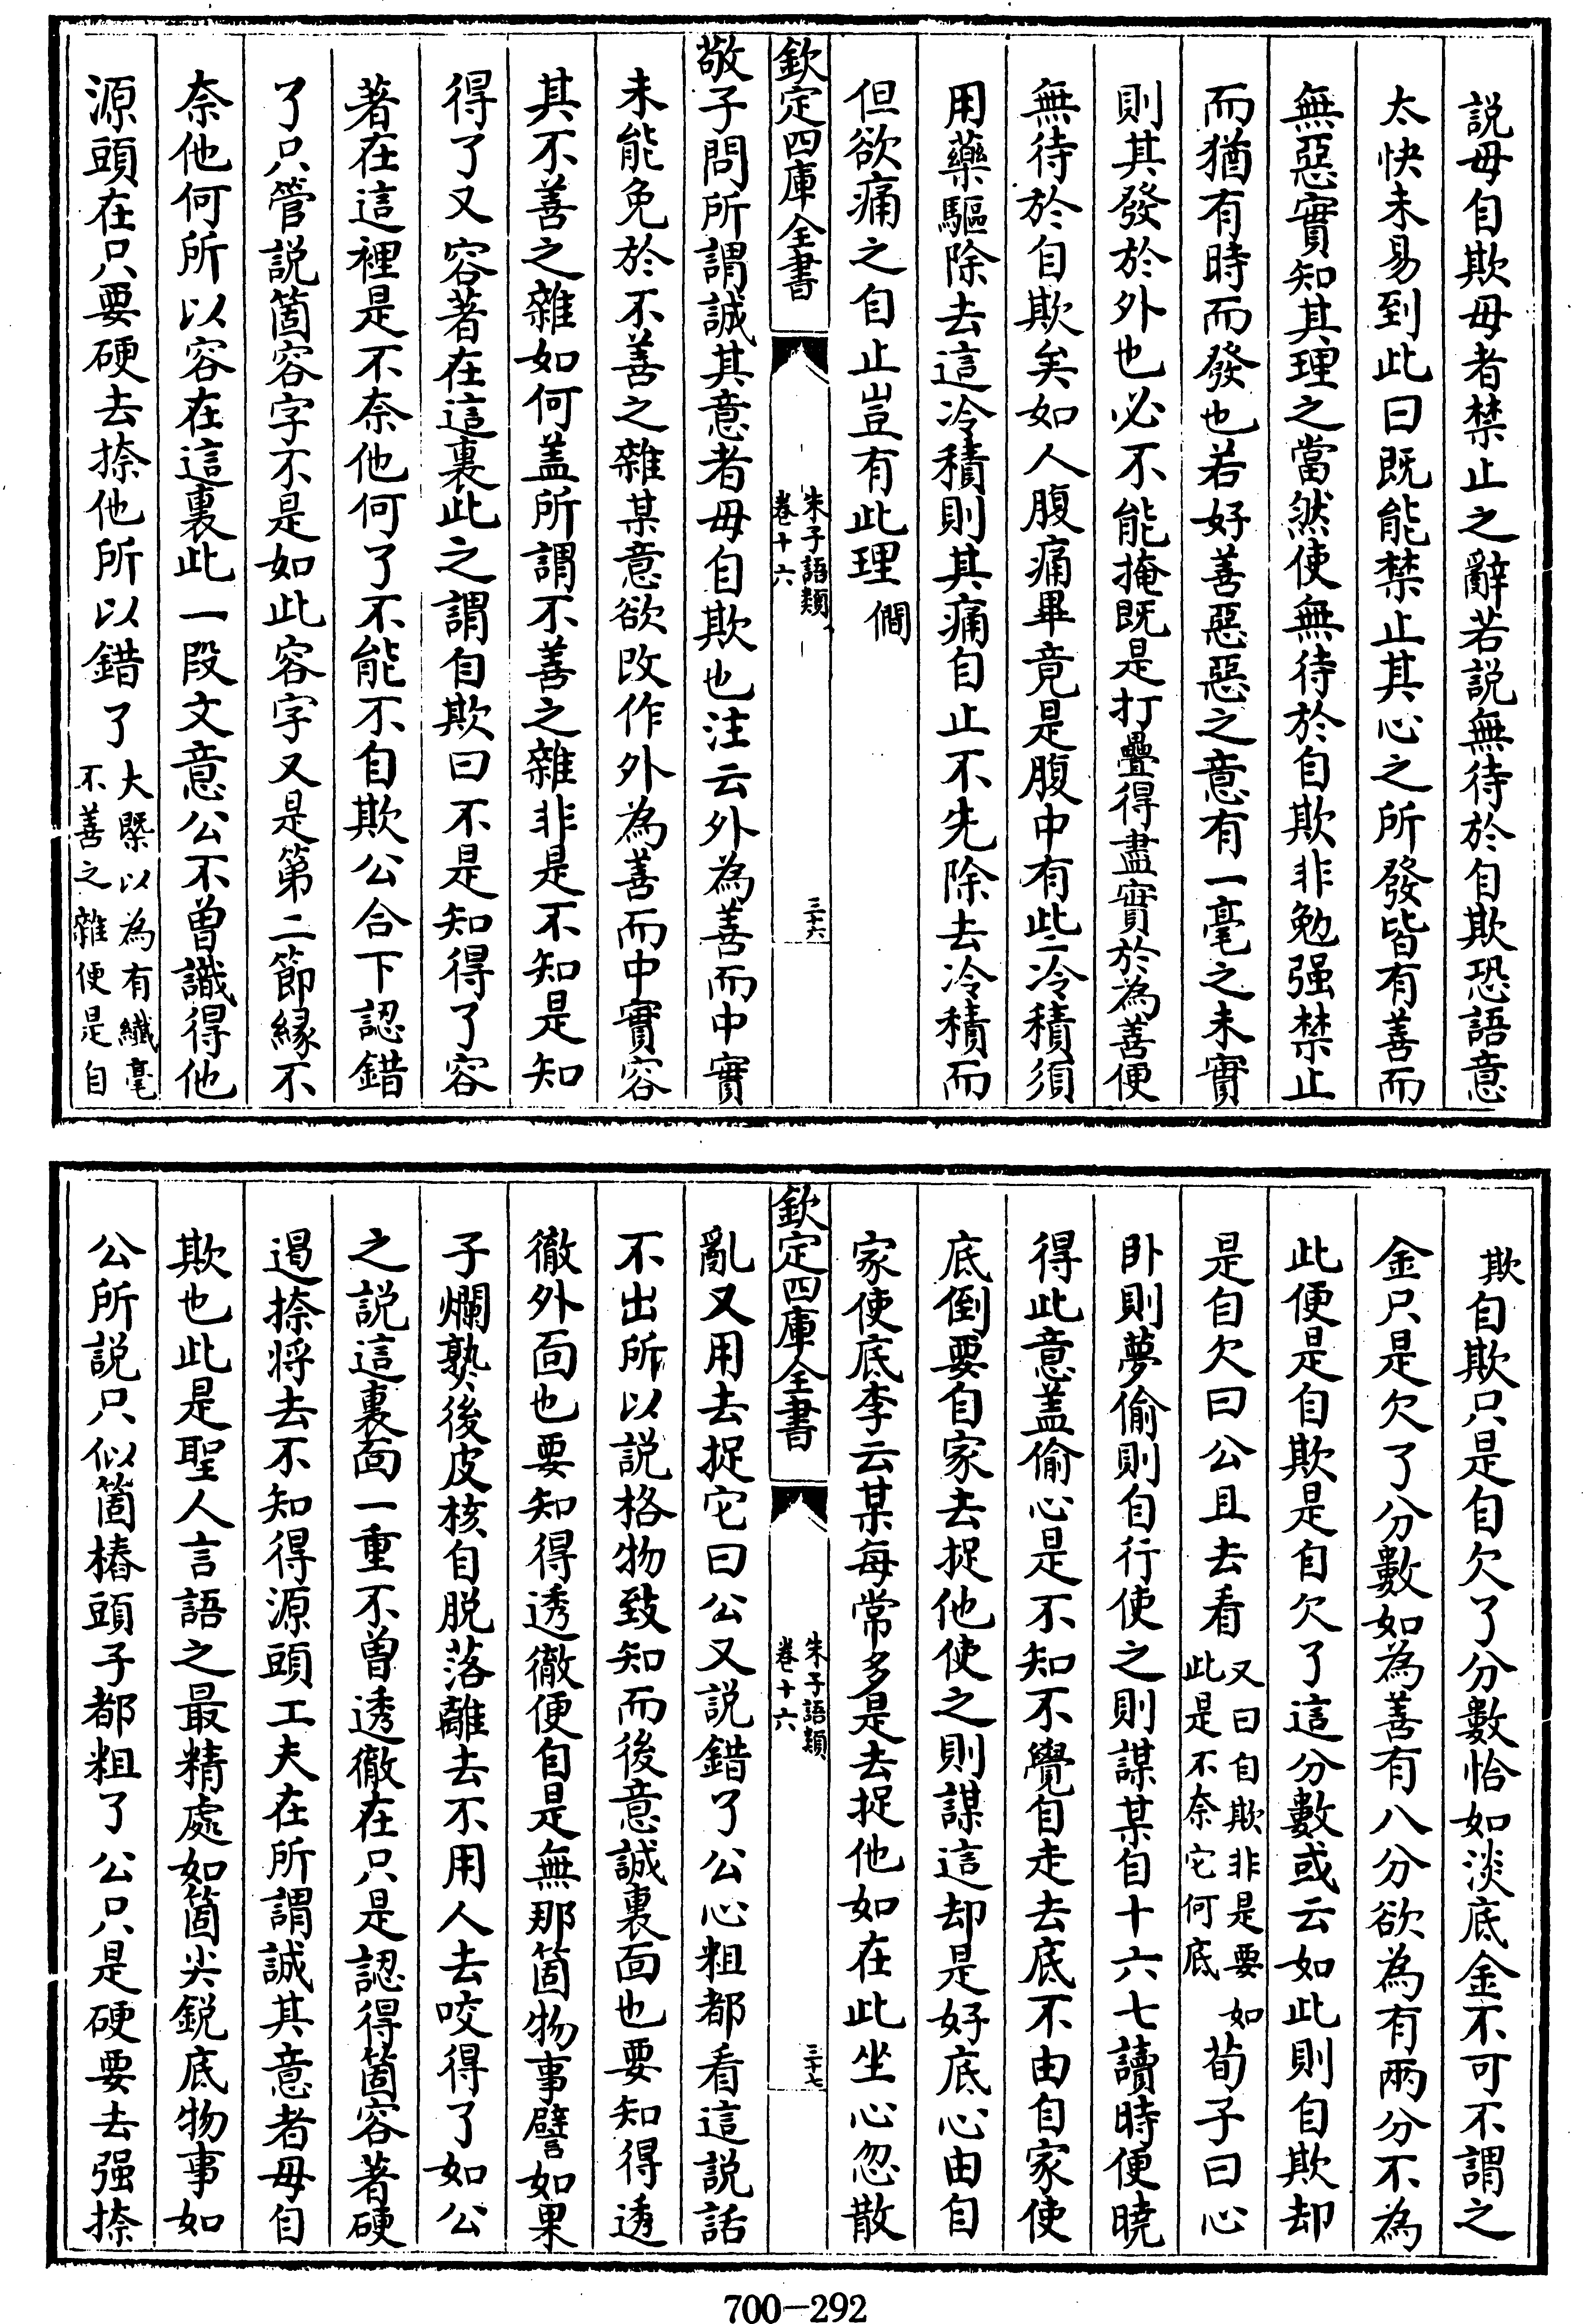 説毋自欺毋者禁止之辭若説無待於自欺恐語意
太快未易到此曰既能禁止其心之所發皆有善而
無惡實知其理之當然使無待於自欺非勉强禁止
而猶有時而發也若好善惡惡之意有一毫之未實
則其發於外也必不能掩既是打疊得盡實於為善便
無待於自欺矣如人腹痛畢竟是腹中有些冷積須
用藥驅除去這冷積則其痛自止不先除去冷積而
但欲痛之自止豈有此理　僩
欽定四庫全書
朱子語類
卷十六
三十六
敬子問所謂誠其意者毋自欺也注云外為善而中實
未能免於不善之雜某意欲改作外為善而中實容
其不善之雜如何盖所謂不善之雜非是不知是知
得了又容著在這裏此之謂自欺曰不是知得了容
著在這裡是不奈他何了不能不自欺公合下認錯
了只管説箇容字不是如此容字又是第二節縁不
奈他何所以容在這裏此一段文意公不曾識得他
源頭在只要硬去捺他所以錯了大槩以為有纖毫
不善之雜便是自
欺自欺只是自欠了分數恰如淡底金不可不謂之
金只是欠了分數如為善有八分欲為有兩分不為
此便是自欺是自欠了這分數或云如此則自欺却
是自欠曰公且去看又曰自欺非是要如
此是不奈它何底荀子曰心
卧則夢偷則自行使之則謀某自十六七讀時便曉
得此意盖偷心是不知不覺自走去底不由自家使
底倒要自家去捉他使之則謀這却是好底心由自
家使底李云某每常多是去捉他如在此坐心忽散
欽定四庫全書
朱子語類
卷十六
三十七
亂又用去捉它曰公又説錯了公心粗都看這説話
不出所以説格物致知而後意誠裏面也要知得透
徹外面也要知得透徹便自是無那箇物事譬如果
子爛熟後皮核自脱落離去不用人去咬得了如公
之説這裏面一重不曾透徹在只是認得箇容著硬
遏捺将去不知得源頭工夫在所謂誠其意者毋自
欺也此是聖人言語之最精處如箇尖鋭底物事如
公所説只似箇樁頭子都粗了公只是硬要去强捺
700-292